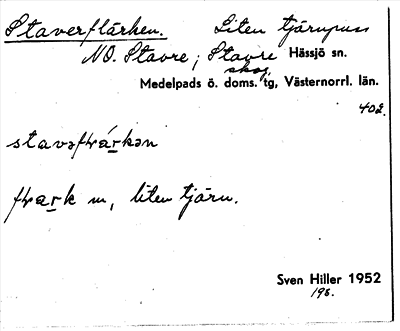 Staverflärken. Liten tjärnpuss
NO. Stavre; Stavre skog Hässjö sn.
Medelpads ö. doms. tg, Västernorrl. län.
402.
flark m, liten tjärn.
Sven Hiller 1952
198.